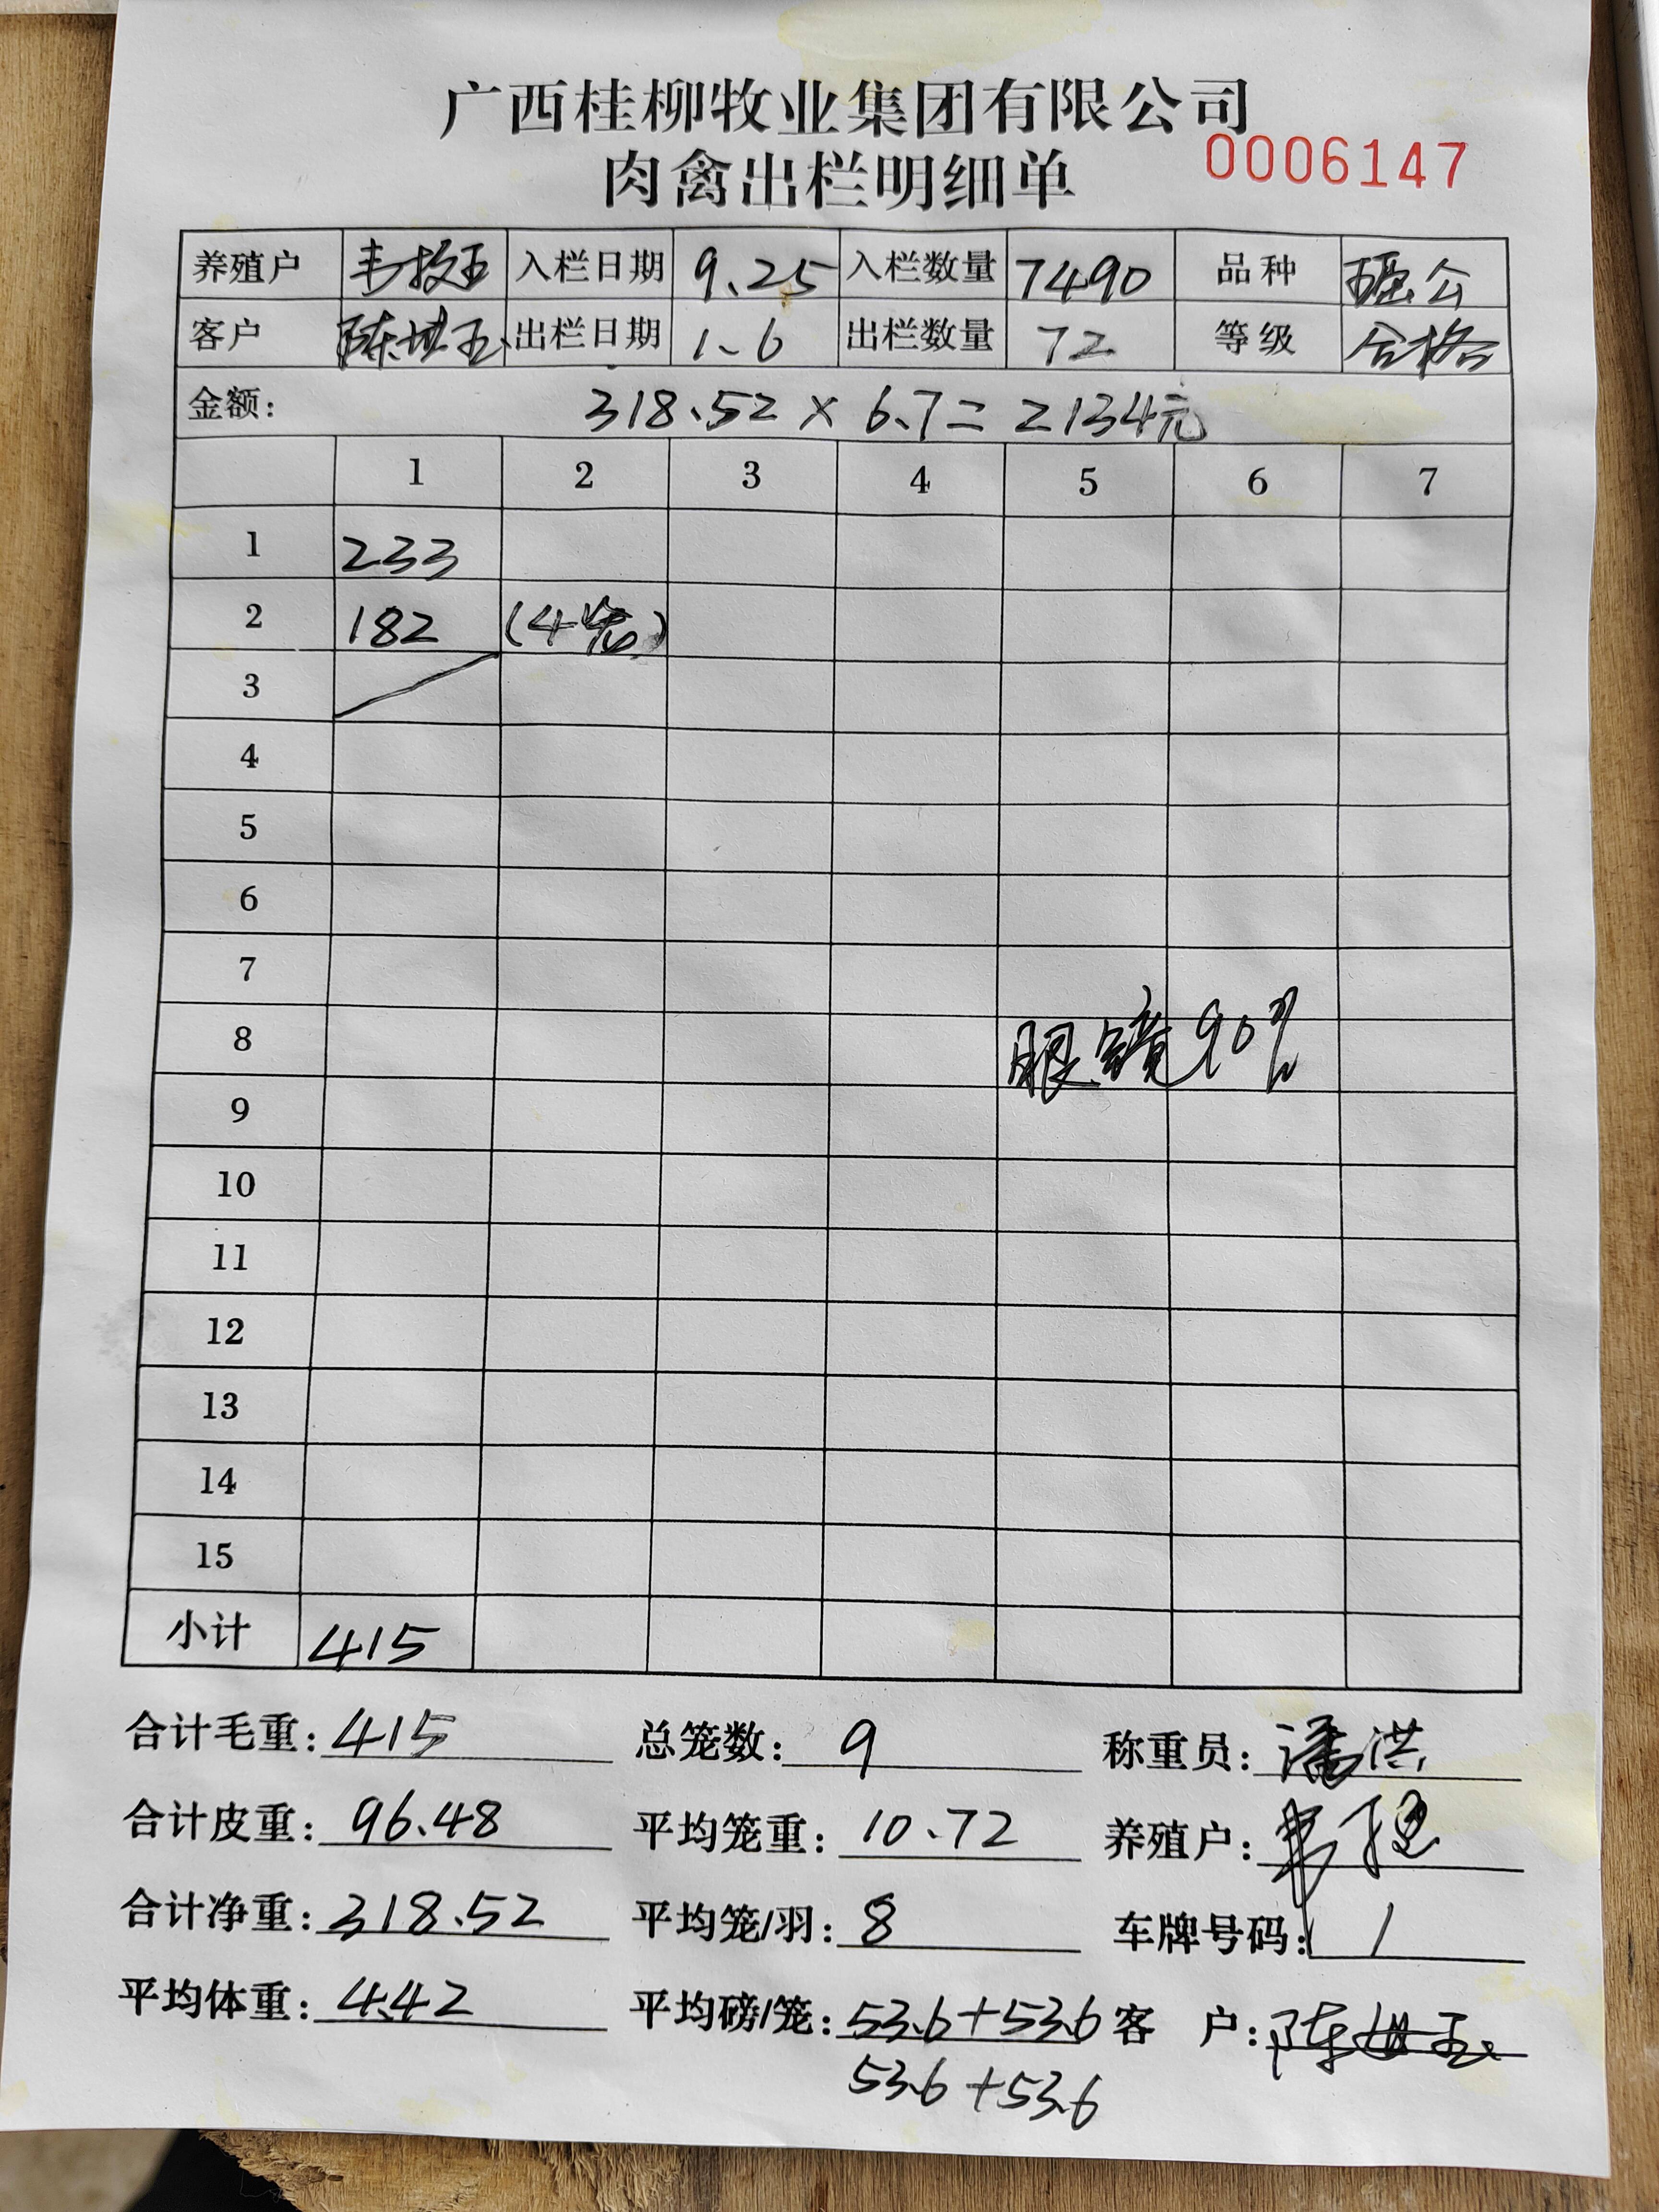 广西桂柳牧业集团有限公司
肉禽出栏明细单 0006147
养殖户 韦 入栏日期 9.25 入栏数量 7490 品种 公
客户 陈 玉 出栏日期 1.6 出栏数量 72 等级 合格
金额: 318.52 × 6.7 = 2134元
1 2 3 4 5 6 7
1 233
2 182 (4笼)
3
4
5
6
7
8 眼镜90%
9
10
11
12
13
14
15
小计 415
合计毛重: 415 总笼数: 9 称重员: 潘洪
合计皮重: 96.48 平均笼重: 10.72 养殖户: 韦
合计净重: 318.52 平均笼/羽: 8 车牌号码: /
平均体重: 4.42 平均磅/笼: 53.6+53.6 客 户: 陈 玉
53.6+53.6